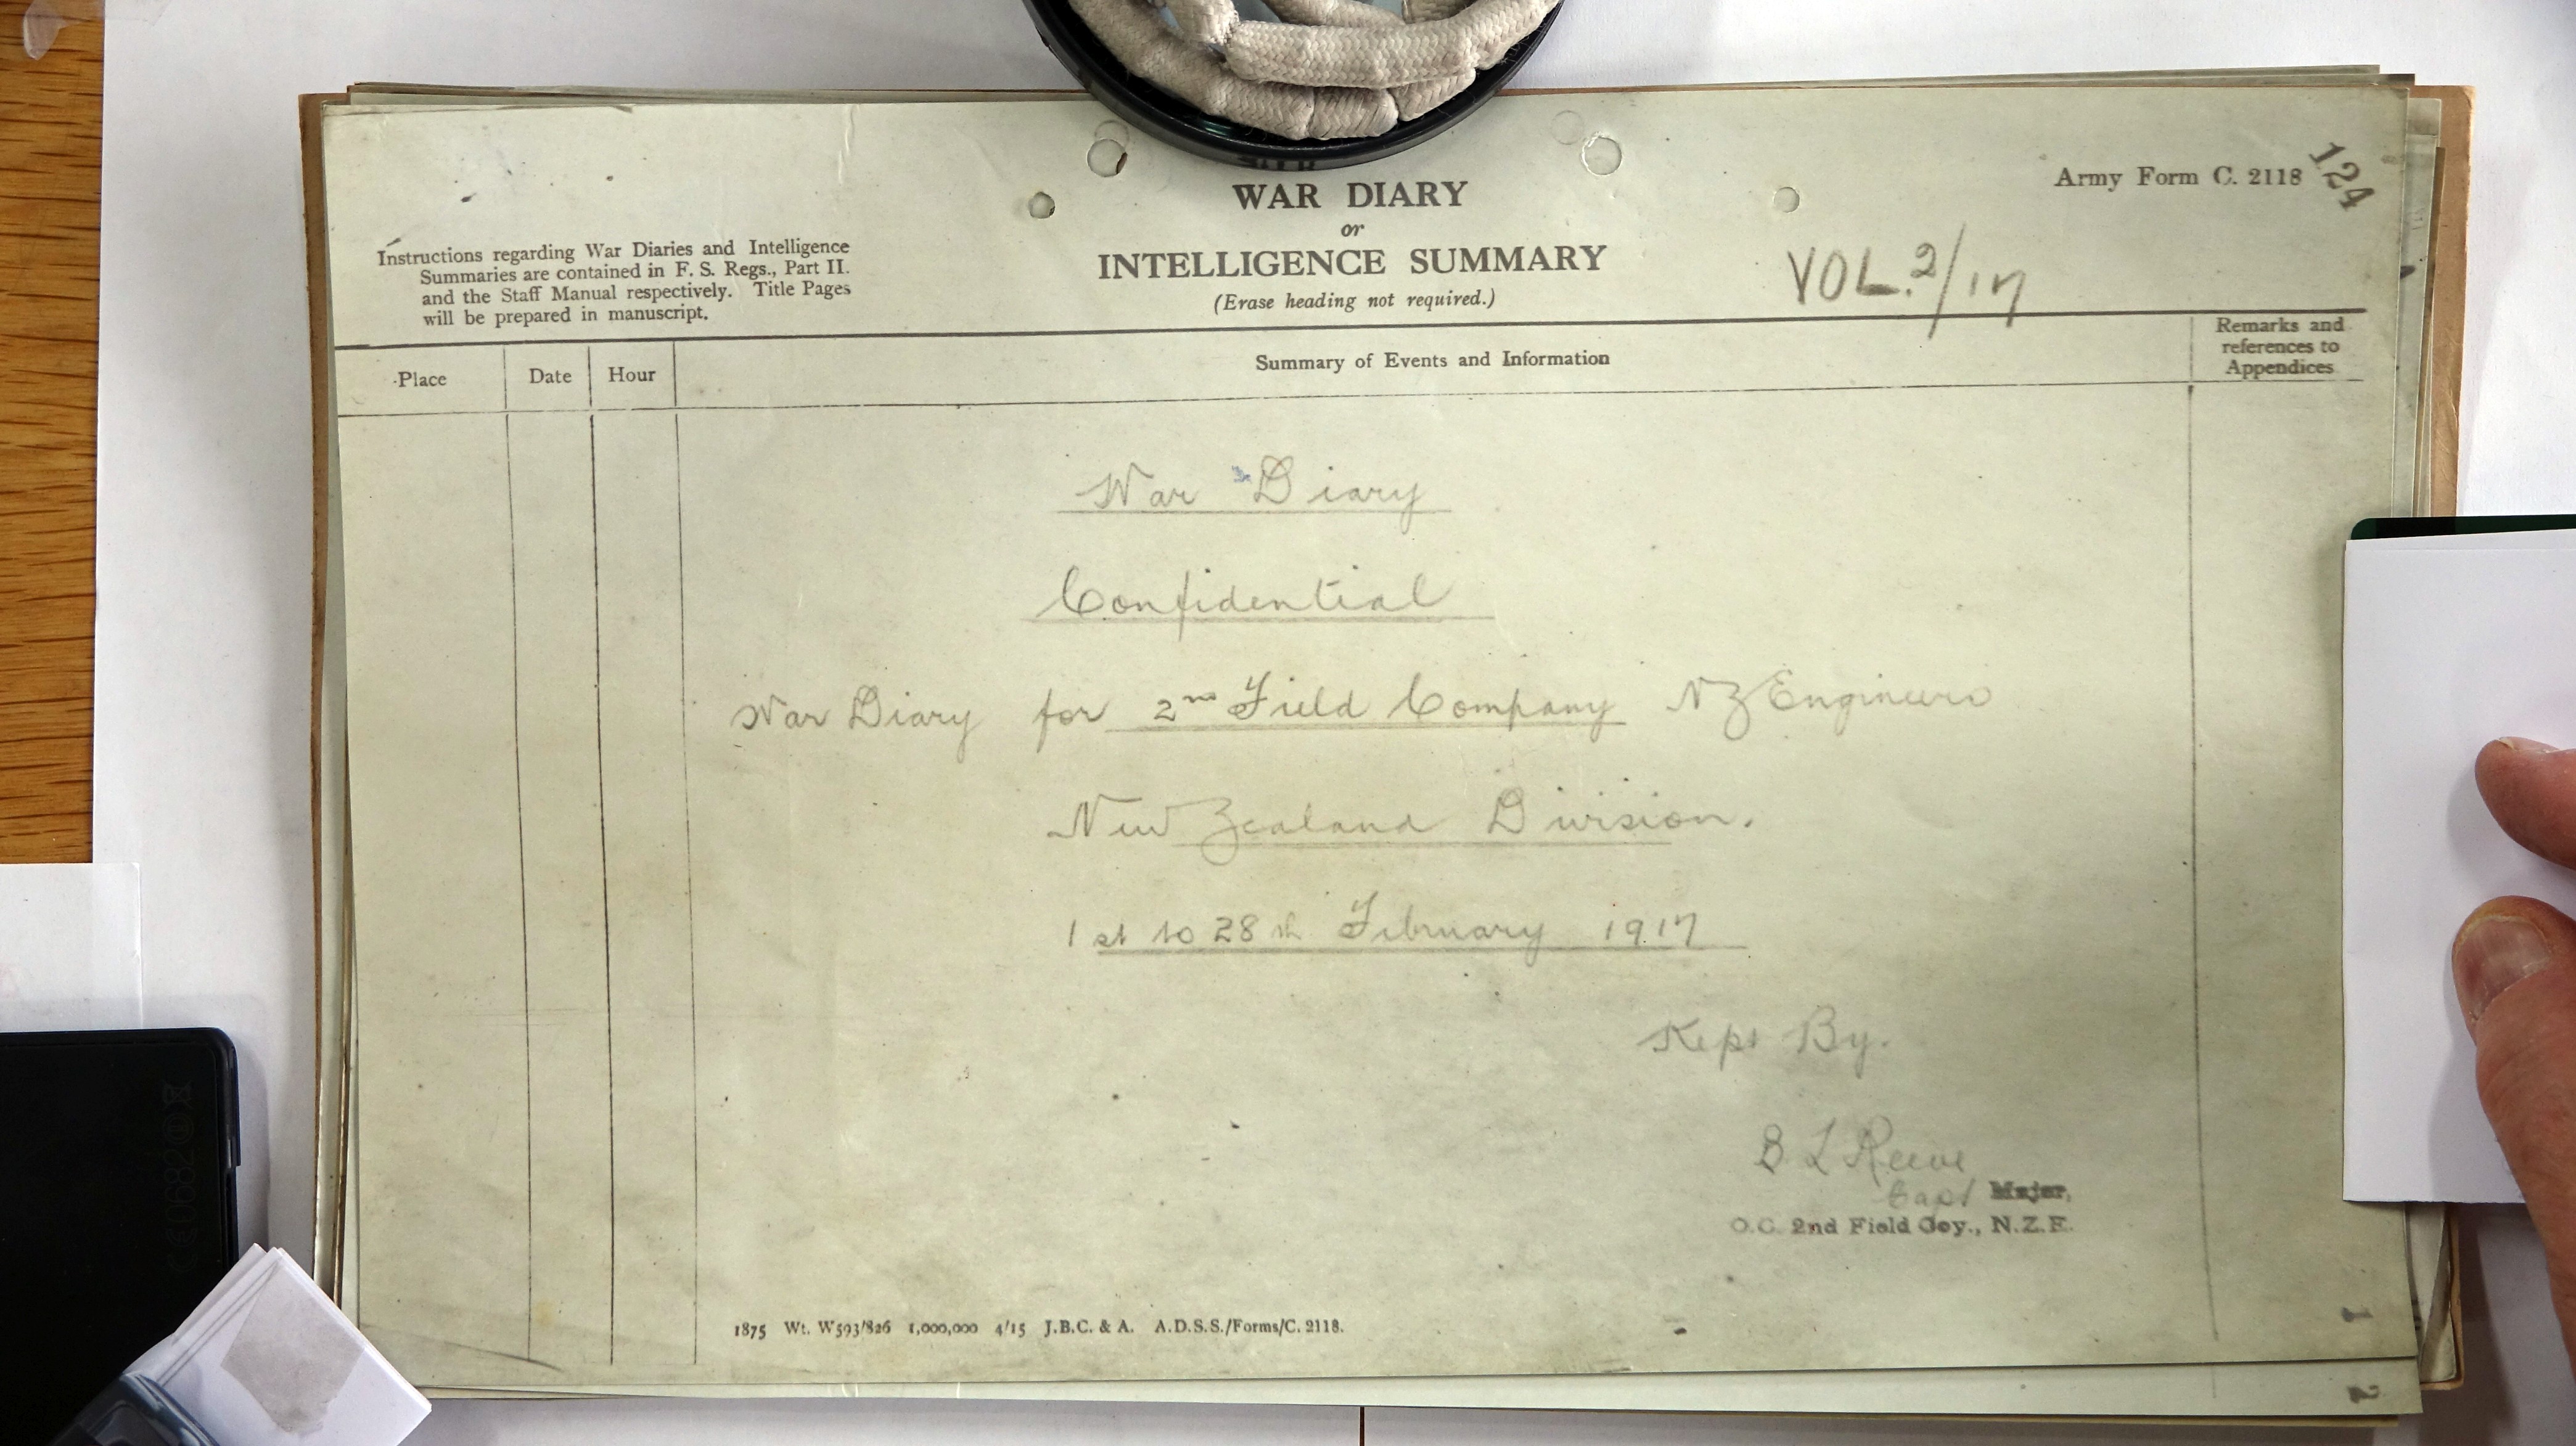 124
Army Form C. 2118
WAR DIARY
or
INTELLIGENCE SUMMARY
(Erase heading not required.)
Instructions regarding War Diaries and Intelligence
Summaries are contained in F. S. Regs., Part II.
and the Staff Manual respectively. Title Pages
will be prepared in manuscript.
VOL. 2/17
Place Date Hour Summary of Events and Information
Remarks and
references to
Appendices
War Diary
Confidential
War Diary for 2nd Field Company NZ Engineers
New Zealand Division.
1st to 28th February 1917
Kept By.
B L Reeve
Capt Major,
O.C. 2nd Field Coy., N.Z.E.
1875 Wt. W593/826 1,000,000 4/15 J.B.C. & A. A.D.S.S./Forms/C. 2118.
1
2